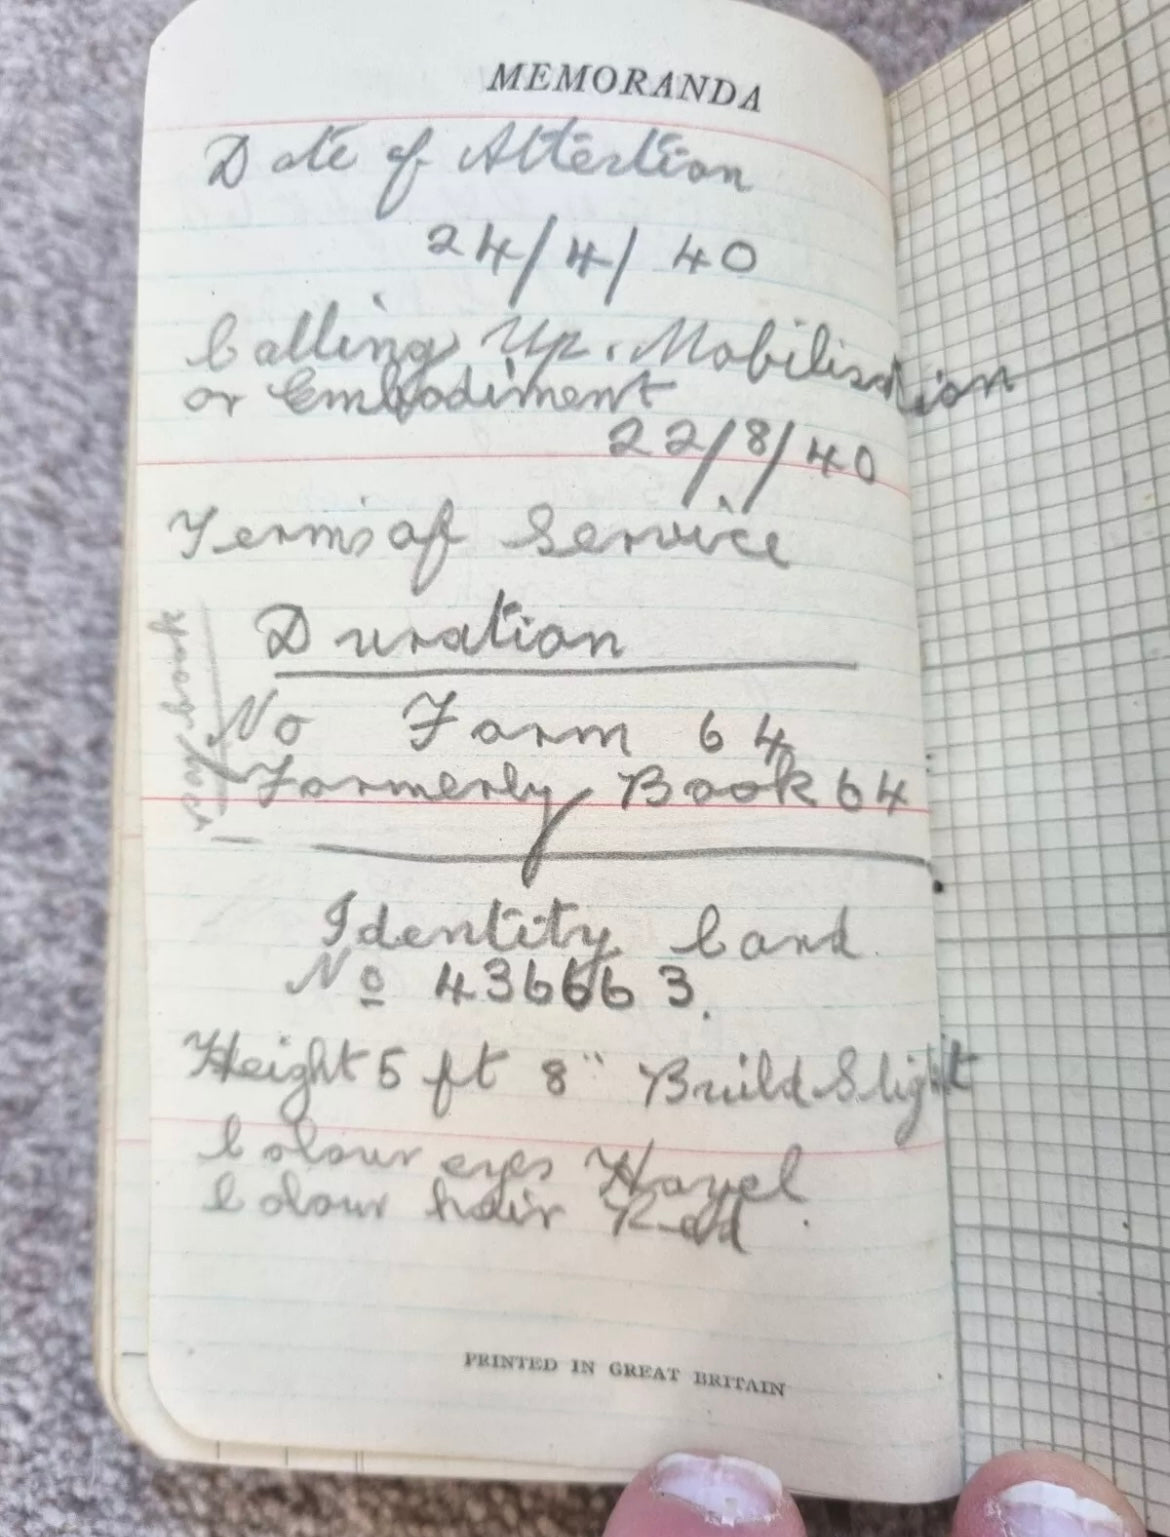 MEMORANDA
Date of Attestion
24/4/40
Calling Up. Mobilisation
or Embodiment
22/8/40
Terms of Service
Duration
No Form 64
Formerly Book 64
Identity Card.
No 436663.
Height 5 ft 8" Build Slight
Colour eyes Hazel
Colour hair Red.
PRINTED IN GREAT BRITAIN
book